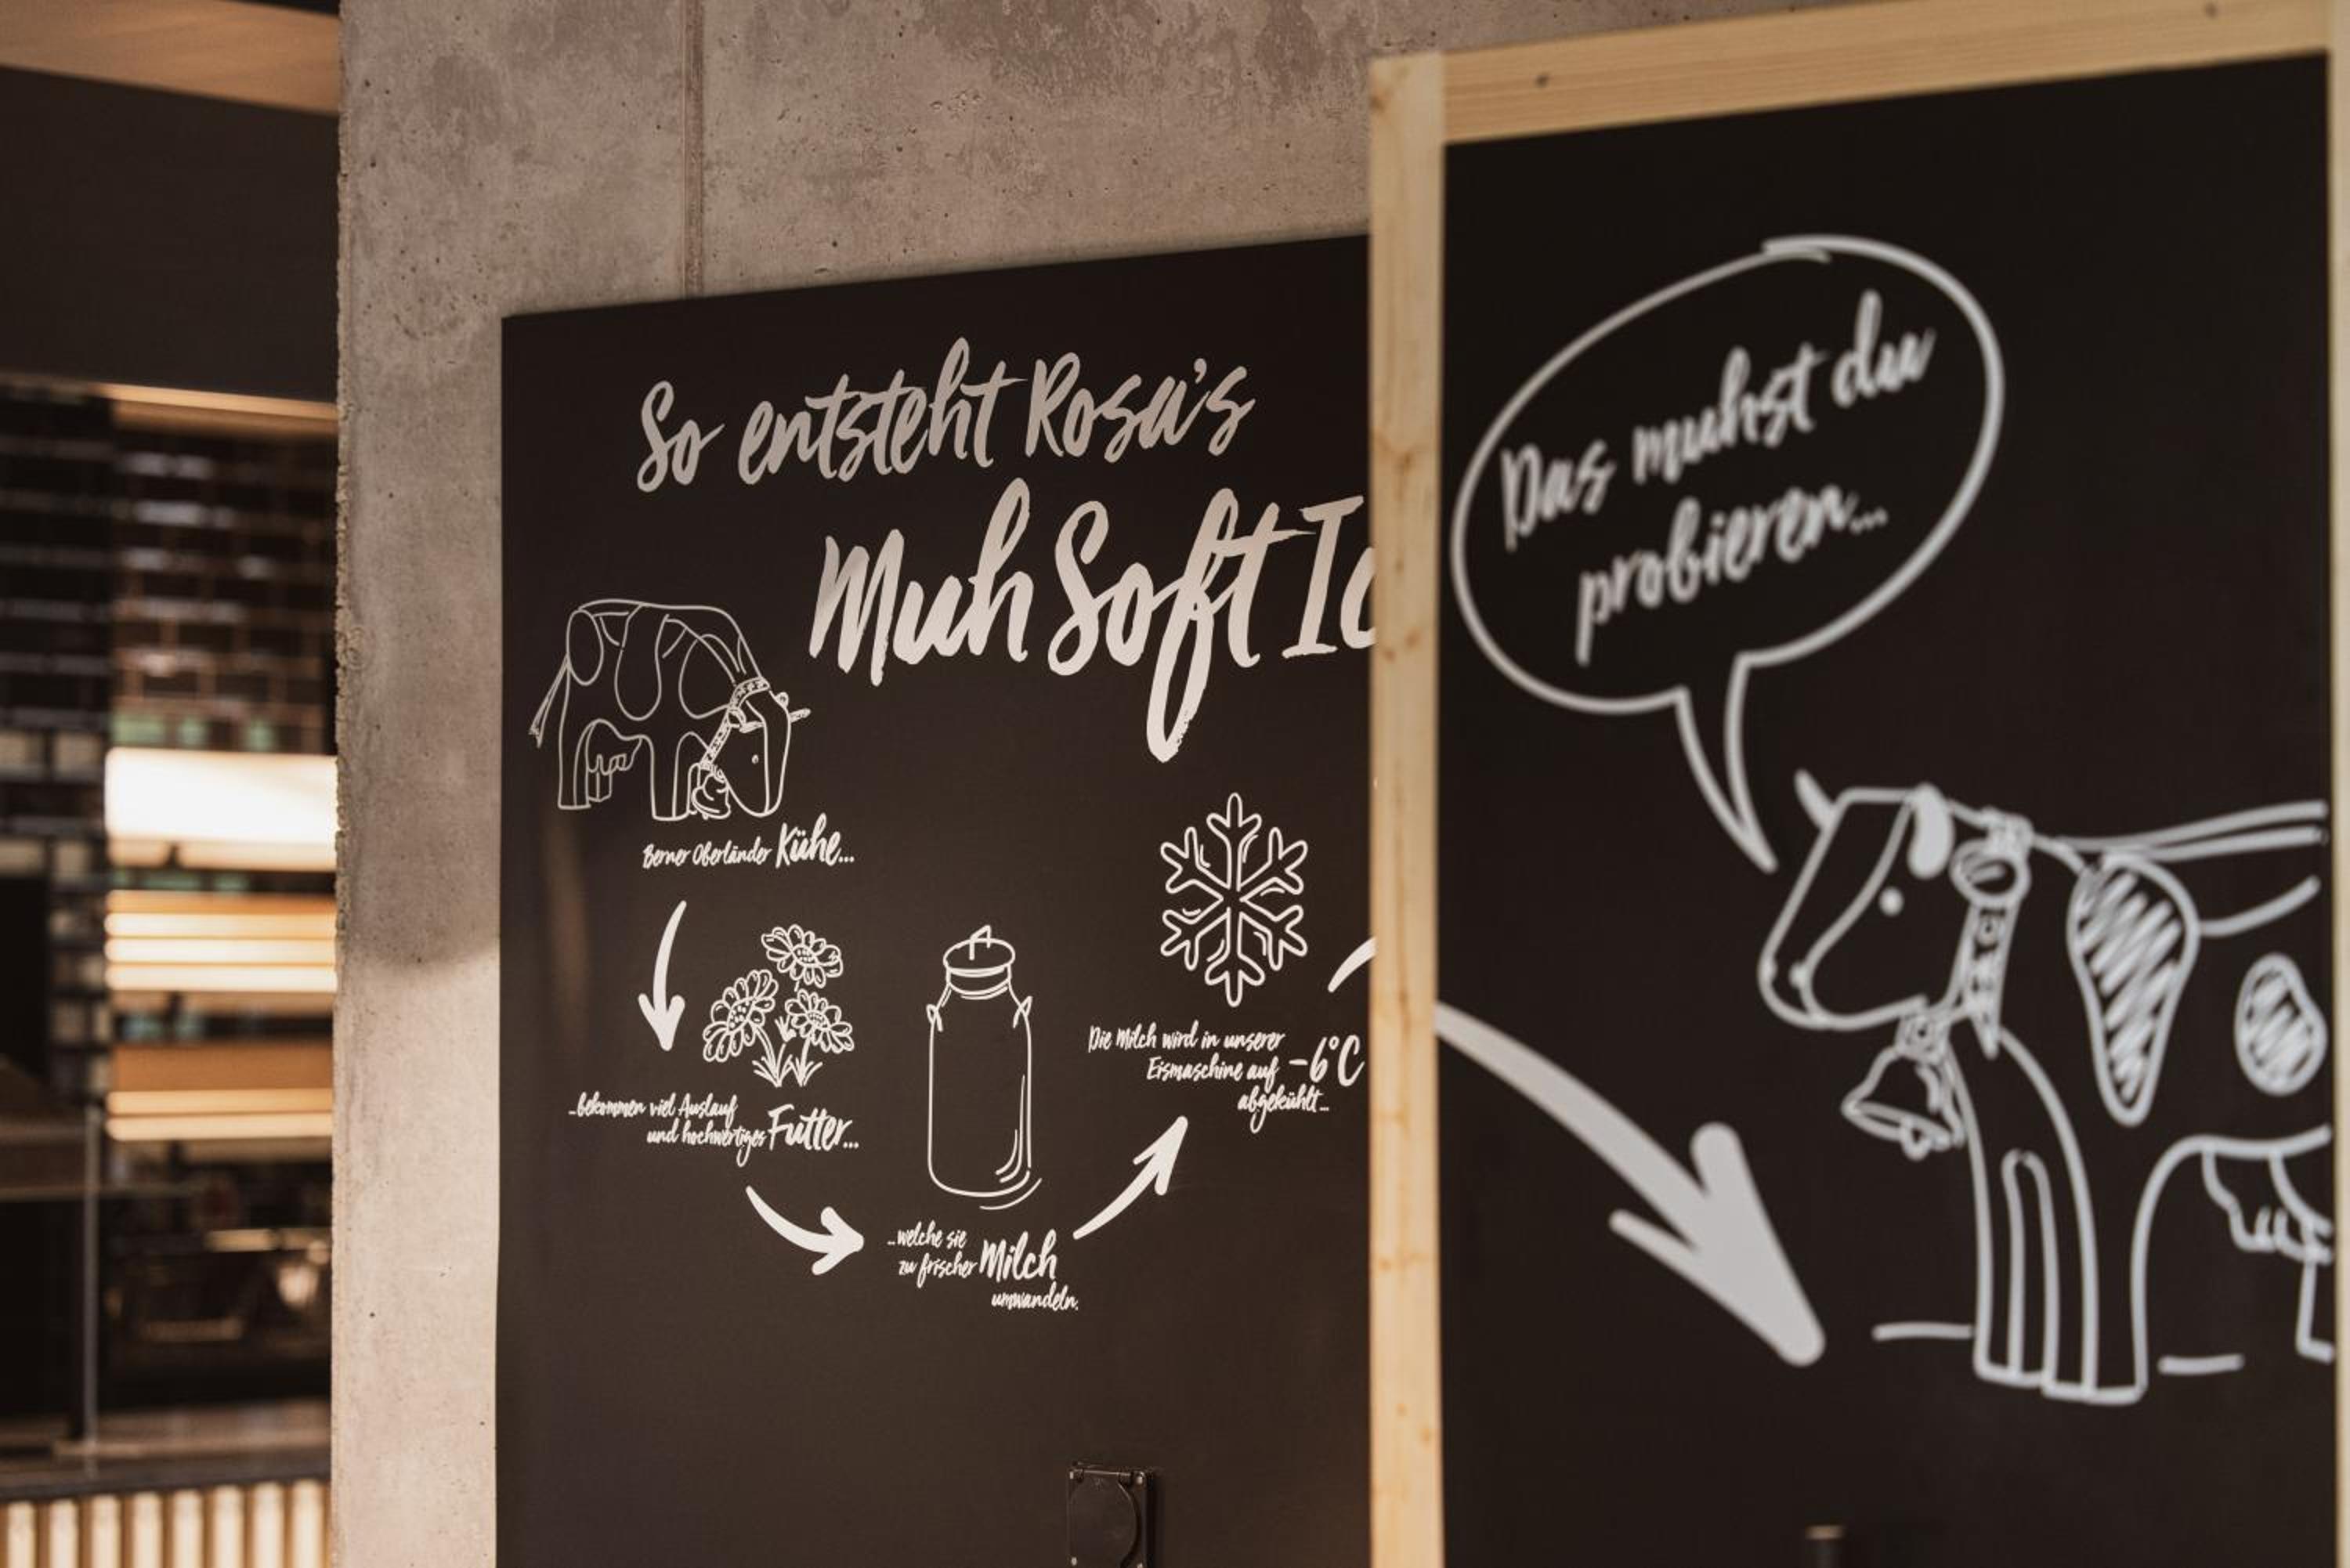 So entsteht Rosa's
Muh Soft Ic
Berner Oberländer Kühe...
...bekommen viel Auslauf
und hochwertiges Futter...
...welche sie
zu frischer Milch
umwandeln.
Die Milch wird in unserer
Eismaschine auf -6°C
abgekühlt...
Das muhst du
probieren...